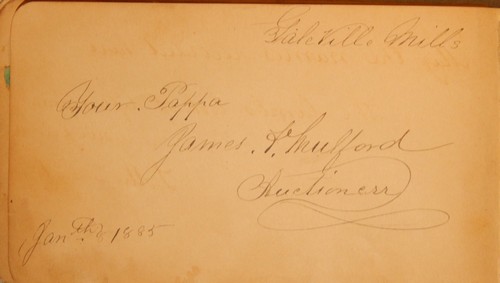 Galeville Mills
Your Pappa
James A. Mulford
Auctioneer
Jan 1885